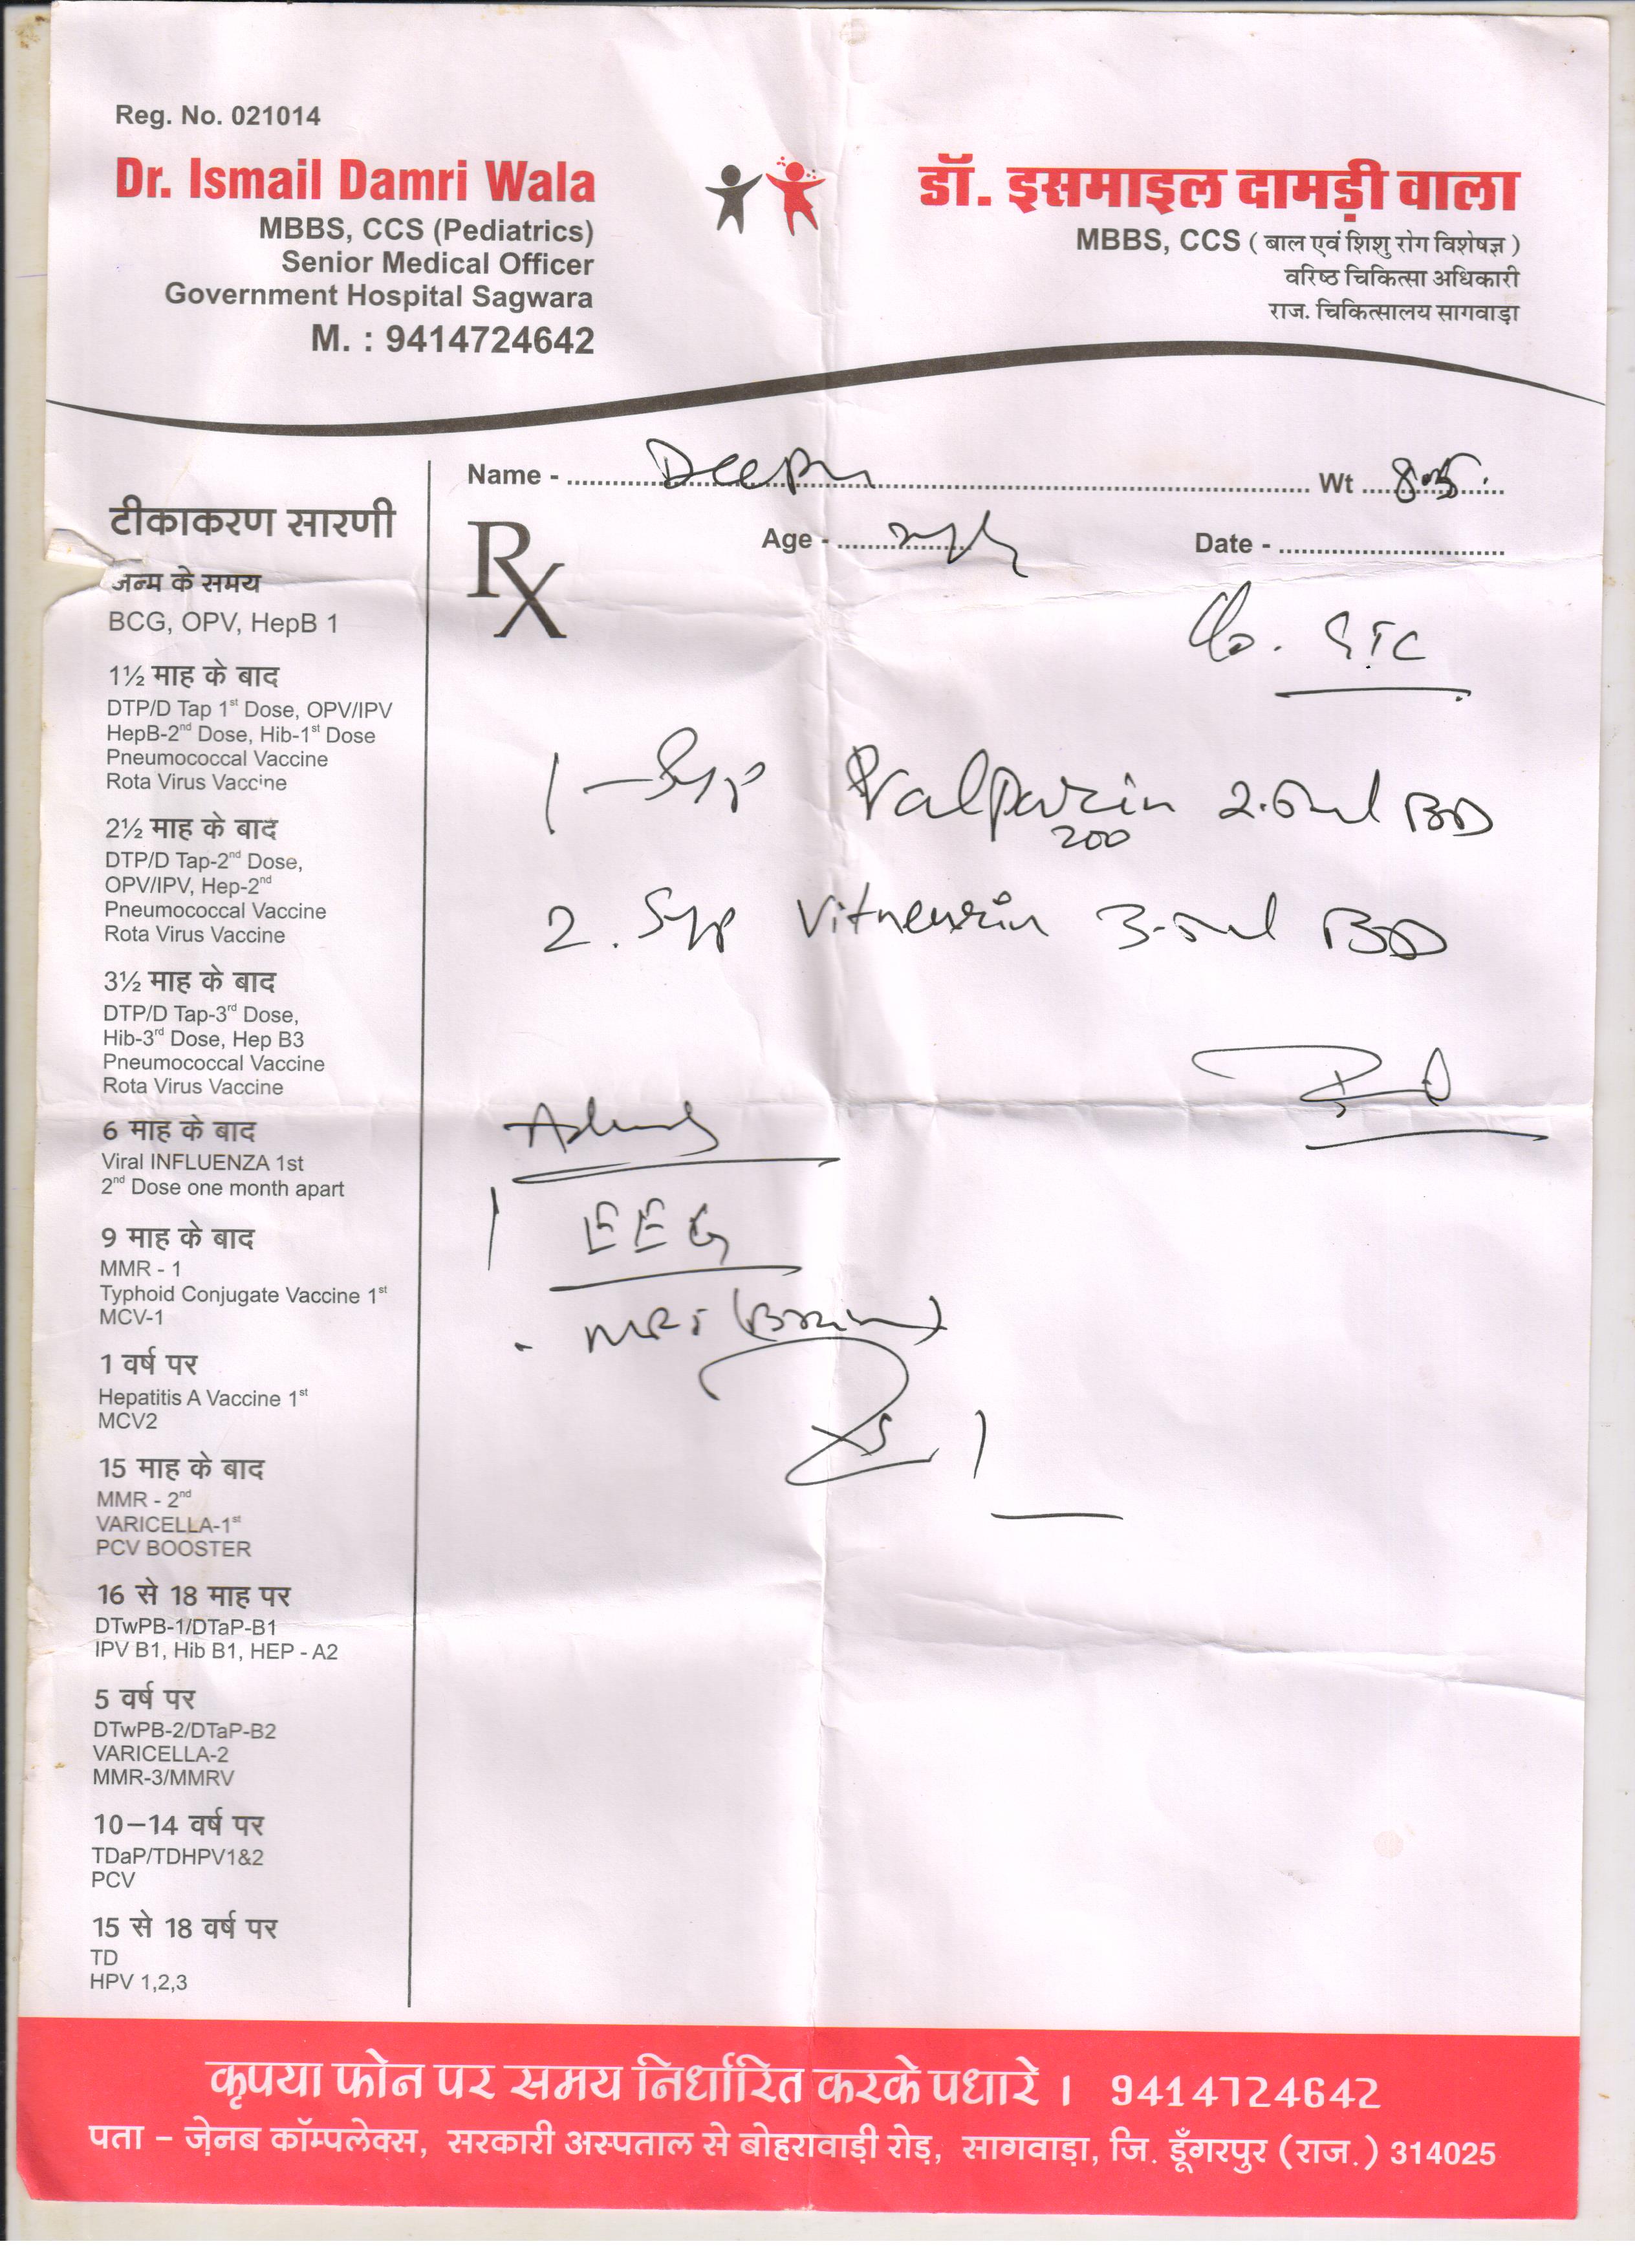 Reg. No. 021014
Dr. Ismail Damri Wala
MBBS, CCS (Pediatrics)
Senior Medical Officer
Government Hospital Sagwara
M. : 9414724642
डॉ. इसमाइल दामड़ी वाला
MBBS, CCS ( बाल एवं शिशु रोग विशेषज्ञ )
वरिष्ठ चिकित्सा अधिकारी
राज. चिकित्सालय सागवाड़ा
टीकाकरण सारणी
जन्म के समय
BCG, OPV, HepB 1
1½ माह के बाद
DTP/D Tap 1st Dose, OPV/IPV
HepB-2nd Dose, Hib-1st Dose
Pneumococcal Vaccine
Rota Virus Vaccine
2½ माह के बाद
DTP/D Tap-2nd Dose,
OPV/IPV, Hep-2nd
Pneumococcal Vaccine
Rota Virus Vaccine
3½ माह के बाद
DTP/D Tap-3rd Dose,
Hib-3rd Dose, Hep B3
Pneumococcal Vaccine
Rota Virus Vaccine
6 माह के बाद
Viral INFLUENZA 1st
2nd Dose one month apart
9 माह के बाद
MMR - 1
Typhoid Conjugate Vaccine 1st
MCV-1
1 वर्ष पर
Hepatitis A Vaccine 1st
MCV2
15 माह के बाद
MMR - 2nd
VARICELLA-1st
PCV BOOSTER
16 से 18 माह पर
DTwPB-1/DTaP-B1
IPV B1, Hib B1, HEP - A2
5 वर्ष पर
DTwPB-2/DTaP-B2
VARICELLA-2
MMR-3/MMRV
10–14 वर्ष पर
TDaP/TDHPV1&2
PCV
15 से 18 वर्ष पर
TD
HPV 1,2,3
Name - Wt
Rx Age - Date -
1 - Syp Valparin 2.5ml BD
200
2. Syp Vitneurin BD
1 EEG
MRI (Brain)
कृपया फोन पर समय निर्धारित करके पधारे । 9414724642
पता – जे़नब कॉम्पलेक्स, सरकारी अस्पताल से बोहरावाड़ी रोड़, सागवाड़ा, जि. डूँगरपुर (राज.) 314025